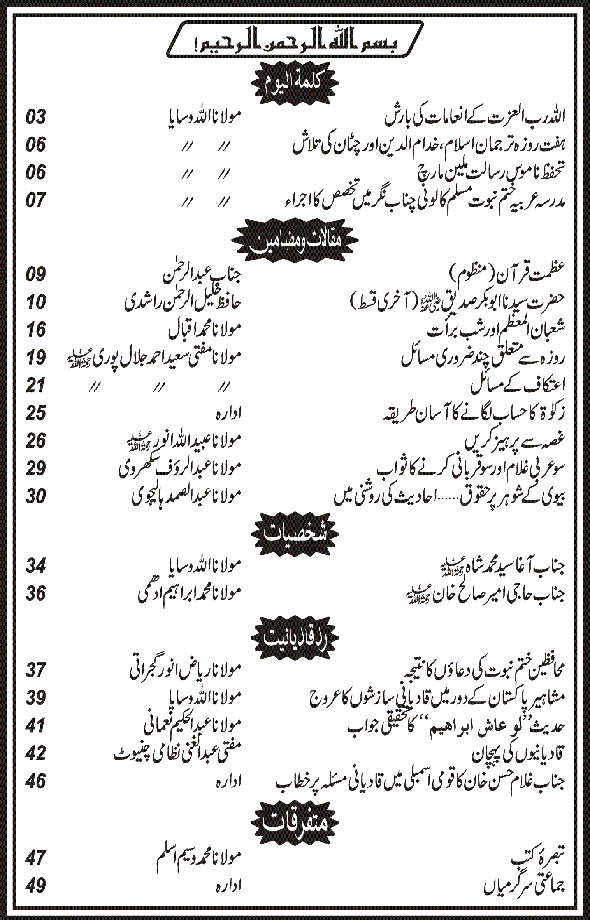 بسم اللہ الرحمن الرحیم!
کلمۃ الیوم
اللہ رب العزت کے انعامات کی بارش مولانا اللہ وسایا 03
ہفت روزہ ترجمان اسلام، خدام الدین اور چٹان کی تلاش // // 06
تحفظ ناموس رسالت ملین مارچ // // 06
مدرسہ عربیہ ختم نبوت مسلم کالونی چناب نگر میں تخصص کا اجراء // // 07
مقالات و مضامین
عظمت قرآن (منظوم) جناب عبدالرحمٰن 09
حضرت سیدنا ابوبکر صدیق رضی اللہ عنہ (آخری قسط) حافظ خلیل الرحمٰن راشدی 10
شعبان المعظم اور شب برأت مولانا محمد اقبال 16
روزہ سے متعلق چند ضروری مسائل مولانا مفتی سعید احمد جلال پوری رحمۃ اللہ علیہ 19
اعتکاف کے مسائل // // // 21
زکوٰۃ کا حساب لگانے کا آسان طریقہ ادارہ 25
غصہ سے پرہیز کریں مولانا عبید اللہ انور رحمۃ اللہ علیہ 26
سو عربی غلام اور سو قربانی کرنے کا ثواب مولانا عبدالرؤف سکھروی 29
بیوی کے شوہر پر حقوق ...... احادیث کی روشنی میں مولانا عبدالصمد ہالیجوی 30
شخصیات
جناب آغا سید محمد شاہ رحمۃ اللہ علیہ مولانا اللہ وسایا 34
جناب حاجی امیر صالح خان رحمۃ اللہ علیہ مولانا محمد ابراہیم ادھمی 36
رد قادیانیت
محافظین ختم نبوت کی دعاؤں کا نتیجہ مولانا ریاض انور گجراتی 37
مشاہیر پاکستان کے دور میں قادیانی سازشوں کا عروج مولانا اللہ وسایا 39
حدیث ”لو عاش ابراهيم“ کا تحقیقی جواب مولانا عبدالحکیم نعمانی 41
قادیانیوں کی پہچان مفتی عبدالغنی نظامی چنیوٹ 42
جناب غلام حسن خان کا قومی اسمبلی میں قادیانی مسئلہ پر خطاب ادارہ 46
متفرقات
تبصرۂ کتب مولانا محمد وسیم اسلم 47
جماعتی سرگرمیاں ادارہ 49